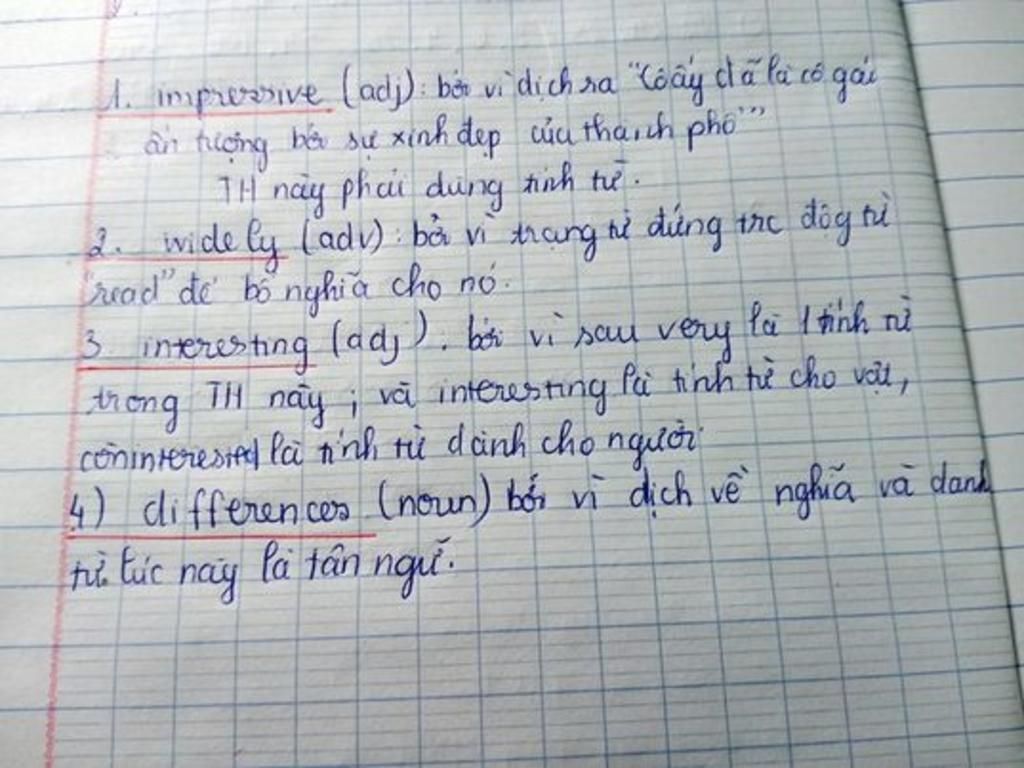 1. impressive (adj): bởi vì dịch ra "Cô ấy đã là cô gái
ấn tượng bởi sự xinh đẹp của thành phố"
TH này phải dùng tính từ.
2. widely (adv): bởi vì trạng từ đứng trc độg từ
"read" để bổ nghĩa cho nó.
3 interesting (adj). bởi vì sau very là 1 tính từ
trong TH này ; và interesting là tính từ cho vật,
còn interested là tính từ dành cho người
4) differences (noun) bởi vì dịch về nghĩa và danh
từ lúc này là tân ngữ.